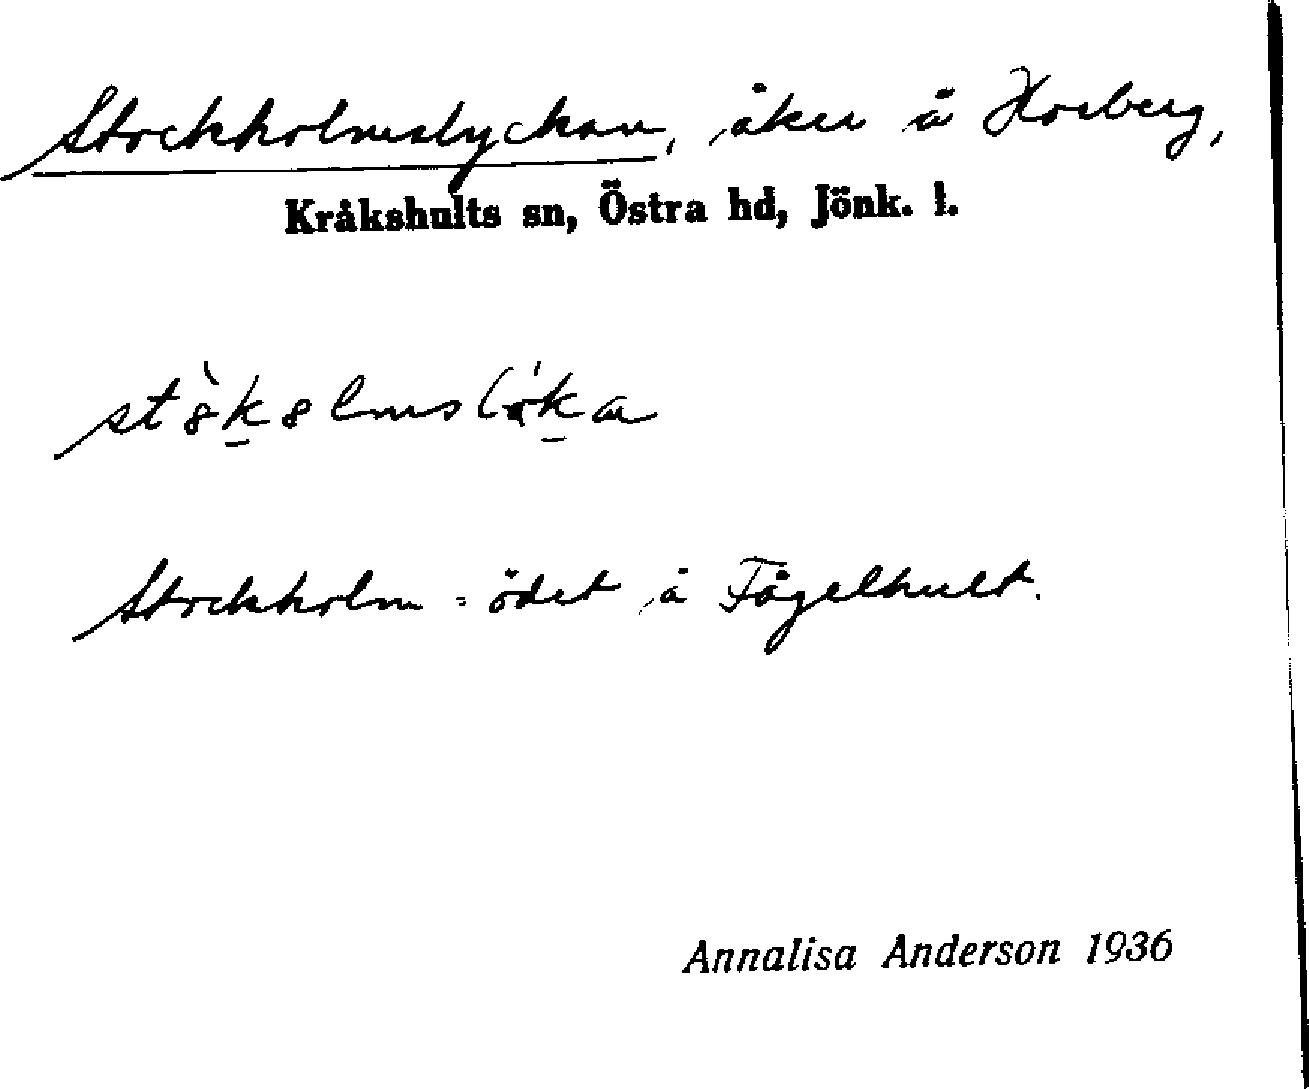 Stockholmslyckan, åker å Horberg,
Kråkshults sn, Östra hd, Jönk. l.
Stockholm = ödet å Fågelhult.
Annalisa Anderson 1936